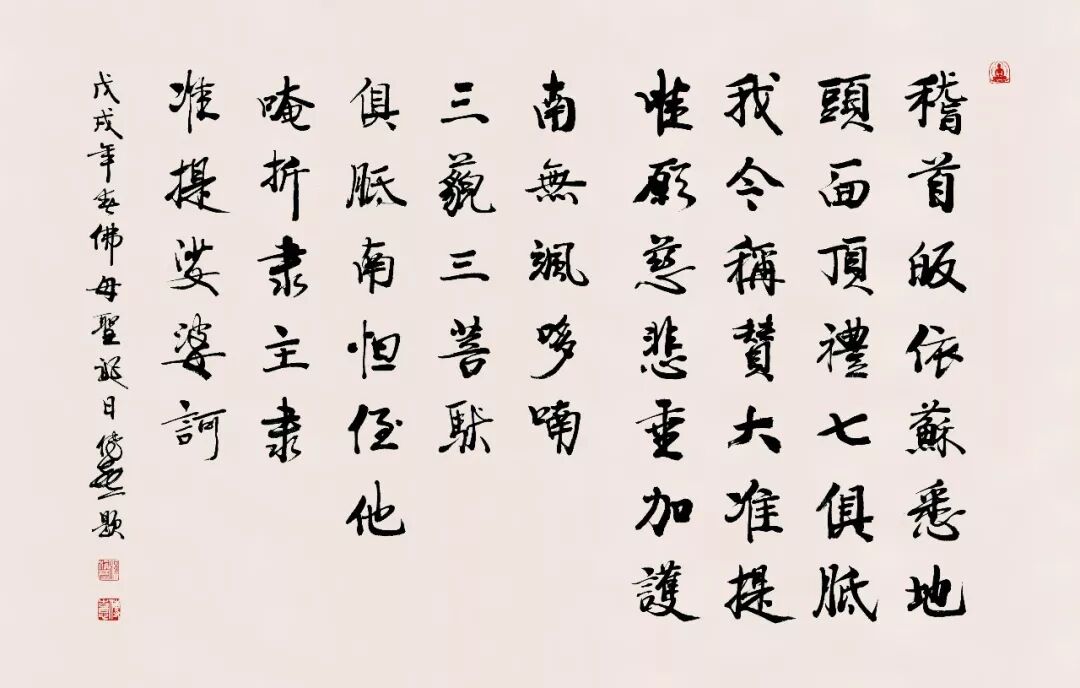 稽首皈依蘇悉地
頭面頂禮七俱胝
我今稱賛大准提
唯愿慈悲垂加護
南無颯哆喃
三藐三菩馱
俱胝南怛侄他
唵折隶主隶
准提娑婆訶
戊戌年春佛母聖誕日題